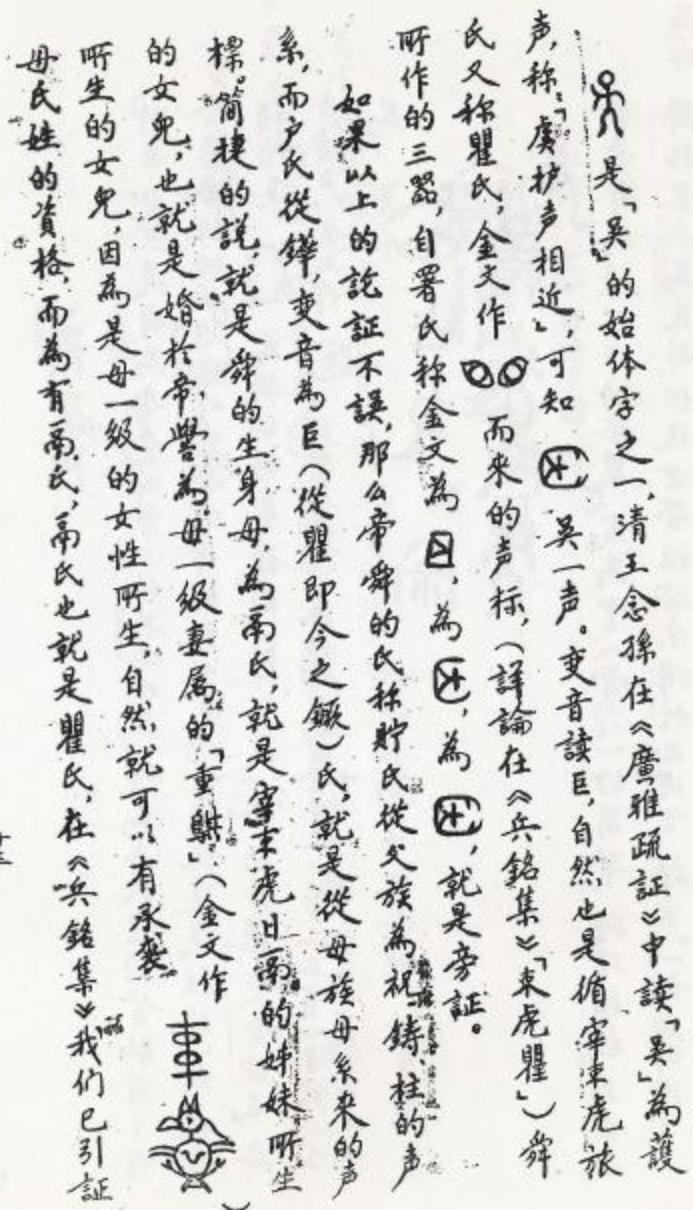 是「吳」的始体字之一，清王念孫在《廣雅疏証》中讀「吳」為護
声，称：「虞护声相近」，可知 吳一声。变音讀巨，自然也是循宰東虎旅
氏又称瞿氏，金文作 而来的声标，（詳論在《兵銘集》「東虎瞿」）舜
所作的三器，自署氏称金文為 ，為 ，為 ，就是旁証。
如果以上的訖証不誤，那么帝舜的氏称貯氏從父族為祝、鑄、柱的声
系，而户氏從鏵，变音為巨（從瞿即今之鏾）氏，就是從母族母系来的声
標。简捷的説，就是舜的生身母，為鬲氏，就是宰東虎日鬲的姊妹所生
的女兒，也就是婚於帝嚳為母一級妻属的「重 」（金文作 ）
所生的女兒，因為是母一級的女性所生，自然就可以有承袭
母氏姓的資格，而為有鬲氏，鬲氏也就是瞿氏，在《兵銘集》我们已引証